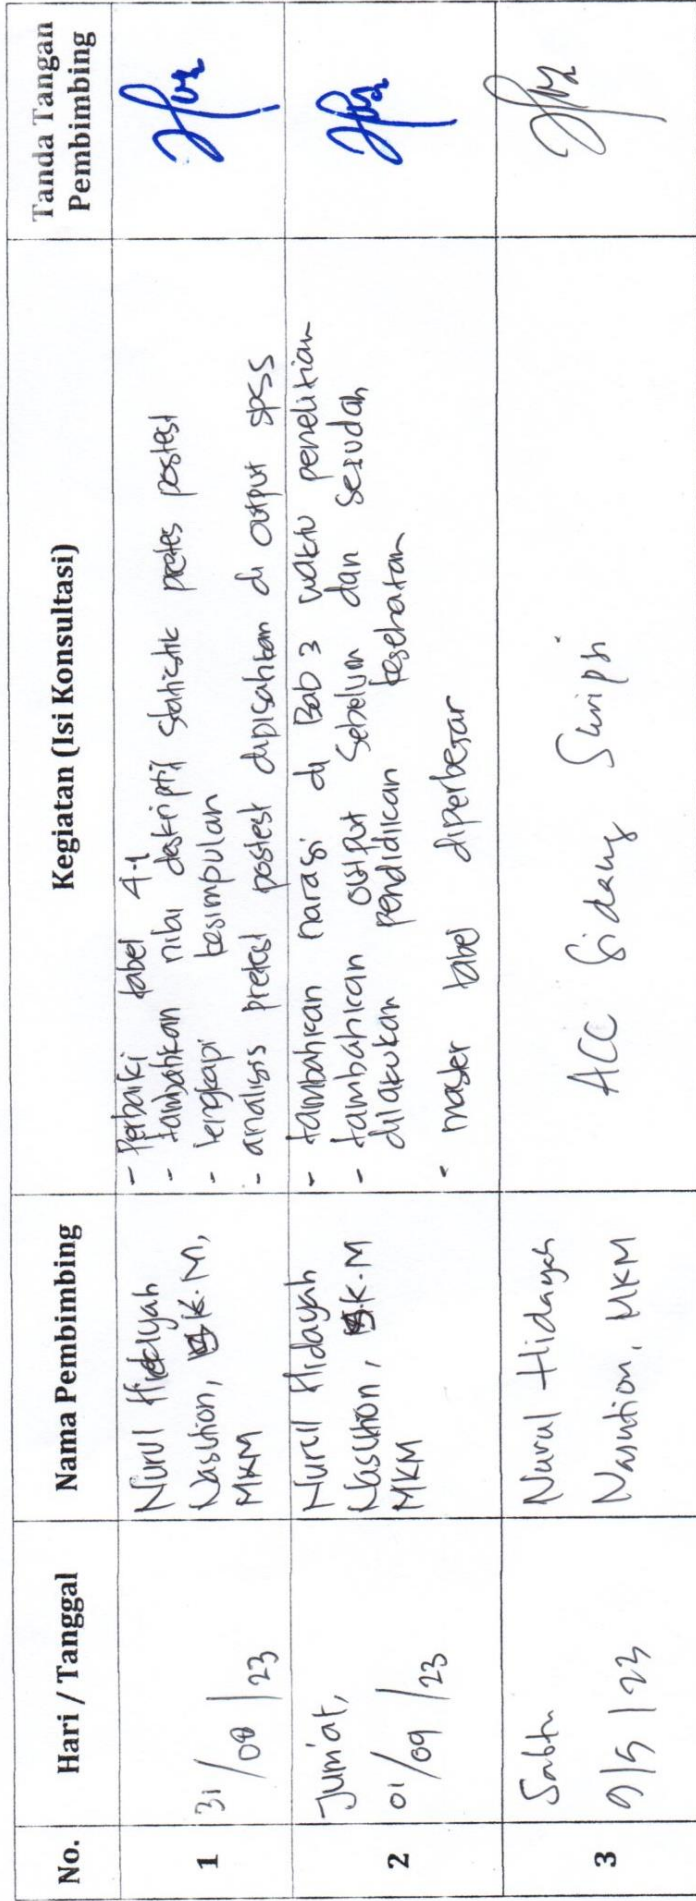 No.
Hari / Tanggal
Nama Pembimbing
Kegiatan (Isi Konsultasi)
Tanda Tangan
Pembimbing
1
31/08/23
Nurul Hidayah
Nasution, K.M,
MKM
- Perbaiki tabel 4.1
- tambahkan nilai deskriptif statistik pretes postest
- lengkapi kesimpulan
- analisis pretest postest dipisahkan di output SPSS
2
Jum'at,
01/09/23
Nurul Hidayah
Nasution, K.M
MKM
- tambahkan narasi di Bab 3 waktu penelitian
- tambahkan output sebelum dan sesudah
dilakukan pendidikan kesehatan
- master tabel diperbesar
3
Sabtu
9/23
Nurul Hidayah
Nasution, MKM
ACC Sidang Skripsi